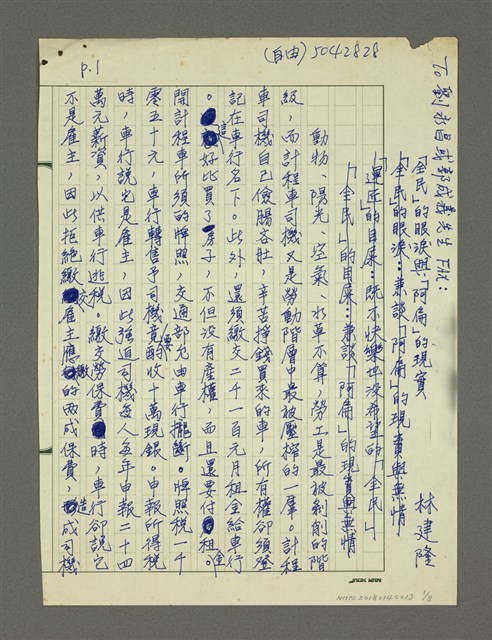 (自由) 5042828
P.1
To 劉永昌或郭成義先生 FAX:
「全民」的眼淚與「阿扁」的現實
「全民」的眼淚：兼談「阿扁」的現實與無情
林建隆
「運匠」的目屎：既不快樂也沒希望的「全民」
「全民」的目屎：兼談「阿扁」的現實與無情
動物、陽光、空氣、水草不算，勞工是最被剝削的階
級，而計程車司機又是勞動階層中最被壓榨的一羣。計程
車司機自己儉腸吝肚，辛苦掙錢買來的車，所有權卻須登
記在車行名下。此外，還須繳交二千一百元月租金給車行
。這好比買了房子，不但沒有產權，而且還要付租。
開計程車所須的牌照，交通部允由車行壟斷。牌照稅一千
零五十元，車行轉售予司機竟要酌收十萬現銀。申報所得稅
時，車行說它是雇主，因此強迫司機每人每年申報二十四
萬元薪資，以供車行逃稅。繳交勞保費時，車行卻說它
不是雇主，因此拒絕繳交雇主應繳的兩成保費，造成司機
NMTL20180140013 1/8